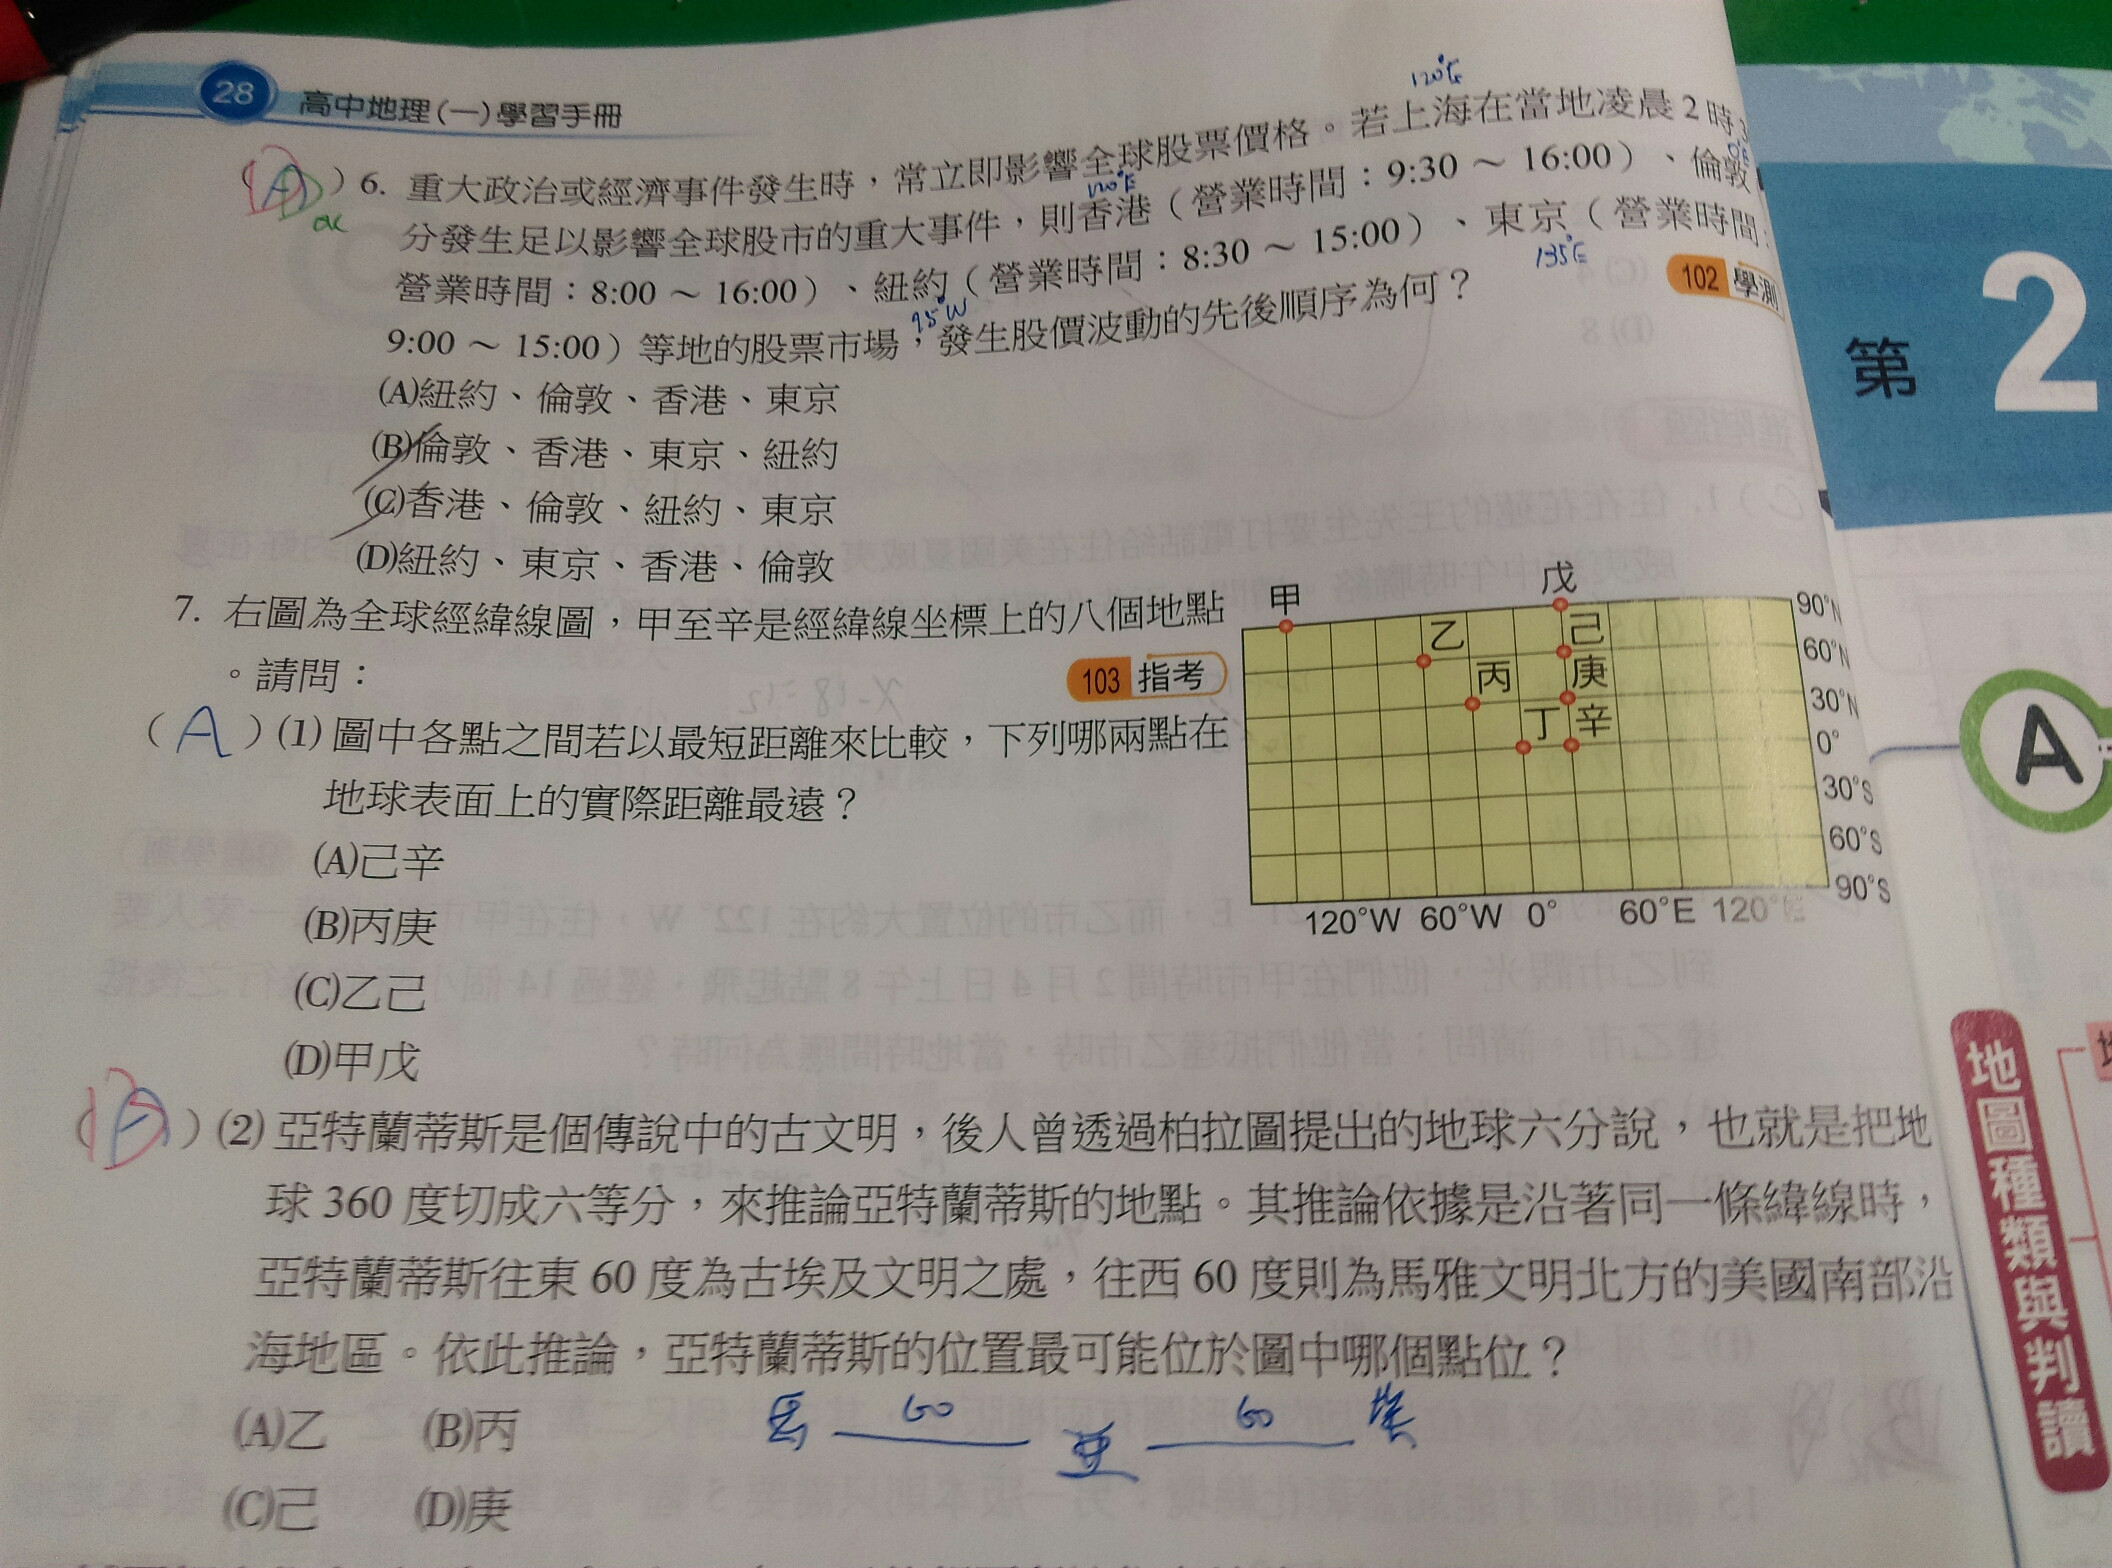 28 高中地理(一)學習手冊
120°E
(D) 6. 重大政治或經濟事件發生時，常立即影響全球股票價格。若上海在當地凌晨2時3
120°E
分發生足以影響全球股市的重大事件，則香港（營業時間：9:30～16:00）、倫敦
營業時間：8:00～16:00）、紐約（營業時間：8:30～15:00）、東京（營業時間：
75°W 135°E
9:00～15:00）等地的股票市場，發生股價波動的先後順序為何？ 102 學測
(A)紐約、倫敦、香港、東京
(B)倫敦、香港、東京、紐約
(C)香港、倫敦、紐約、東京
(D)紐約、東京、香港、倫敦
7. 右圖為全球經緯線圖，甲至辛是經緯線坐標上的八個地點
。請問： 103 指考
(A) (1) 圖中各點之間若以最短距離來比較，下列哪兩點在
地球表面上的實際距離最遠？
(A)己辛
(B)丙庚
(C)乙己
(D)甲戊
甲 戊
乙 己
丙 庚
丁 辛
90°N
60°N
30°N
0°
30°S
60°S
90°S
120°W 60°W 0° 60°E 120°E
(2) 亞特蘭蒂斯是個傳說中的古文明，後人曾透過柏拉圖提出的地球六分說，也就是把地
球360度切成六等分，來推論亞特蘭蒂斯的地點。其推論依據是沿著同一條緯線時，
亞特蘭蒂斯往東60度為古埃及文明之處，往西60度則為馬雅文明北方的美國南部沿
海地區。依此推論，亞特蘭蒂斯的位置最可能位於圖中哪個點位？
(A)乙 (B)丙
(C)己 (D)庚
馬 60 亞 60 埃
第 2
A
地圖種類與判讀